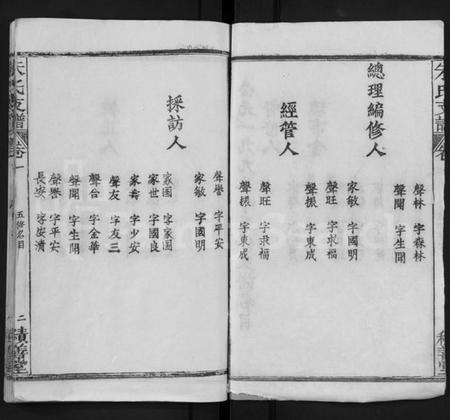 總理編修人
聲林 字森林
聲開 字生開
家敏 字國明
聲旺 字求福
聲振 字東成
經管人
聲旺 字求福
聲振 字東成
聲譽 字平安
家敏 字國明
採訪人
家國 字家國
家世 字國良
家壽 字少安
聲友 字友三
聲合 字金華
聲開 字生開
聲譽 字平安
朱氏支譜 卷一
五修名目
二
積善堂